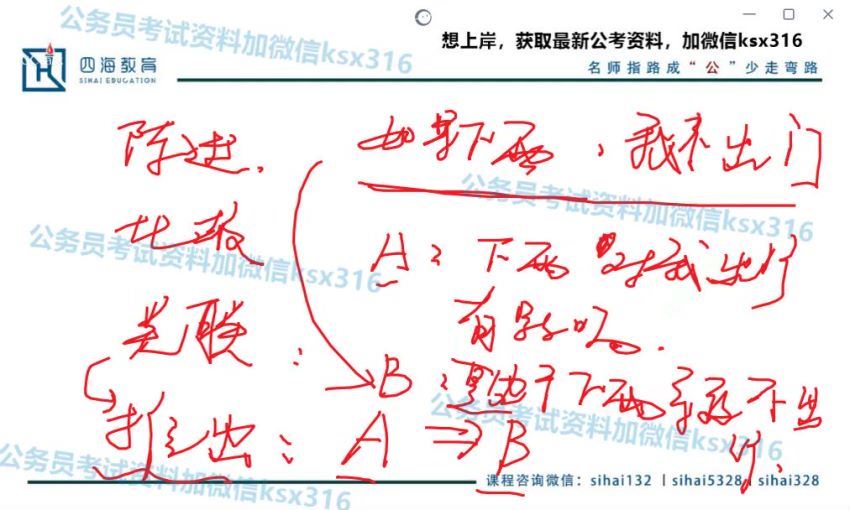 公务员考试资料加微信ksx316
想上岸，获取最新公考资料，加微信ksx316
四海教育
SIHAI EDUCATION
名师指路成“公”少走弯路
陈述
如果下雨，我不出门
公务员考试资料加微信ksx316
比较
公务员考试资料加微信ksx316
A：下雨对我出行
有影响
关联：
B：是由于下雨导致不出
行
公务员考试资料加微信ksx316
推出：A ⇒ B
公务员考试资料加微信ksx316
课程咨询微信：sihai132 | sihai5328 | sihai328